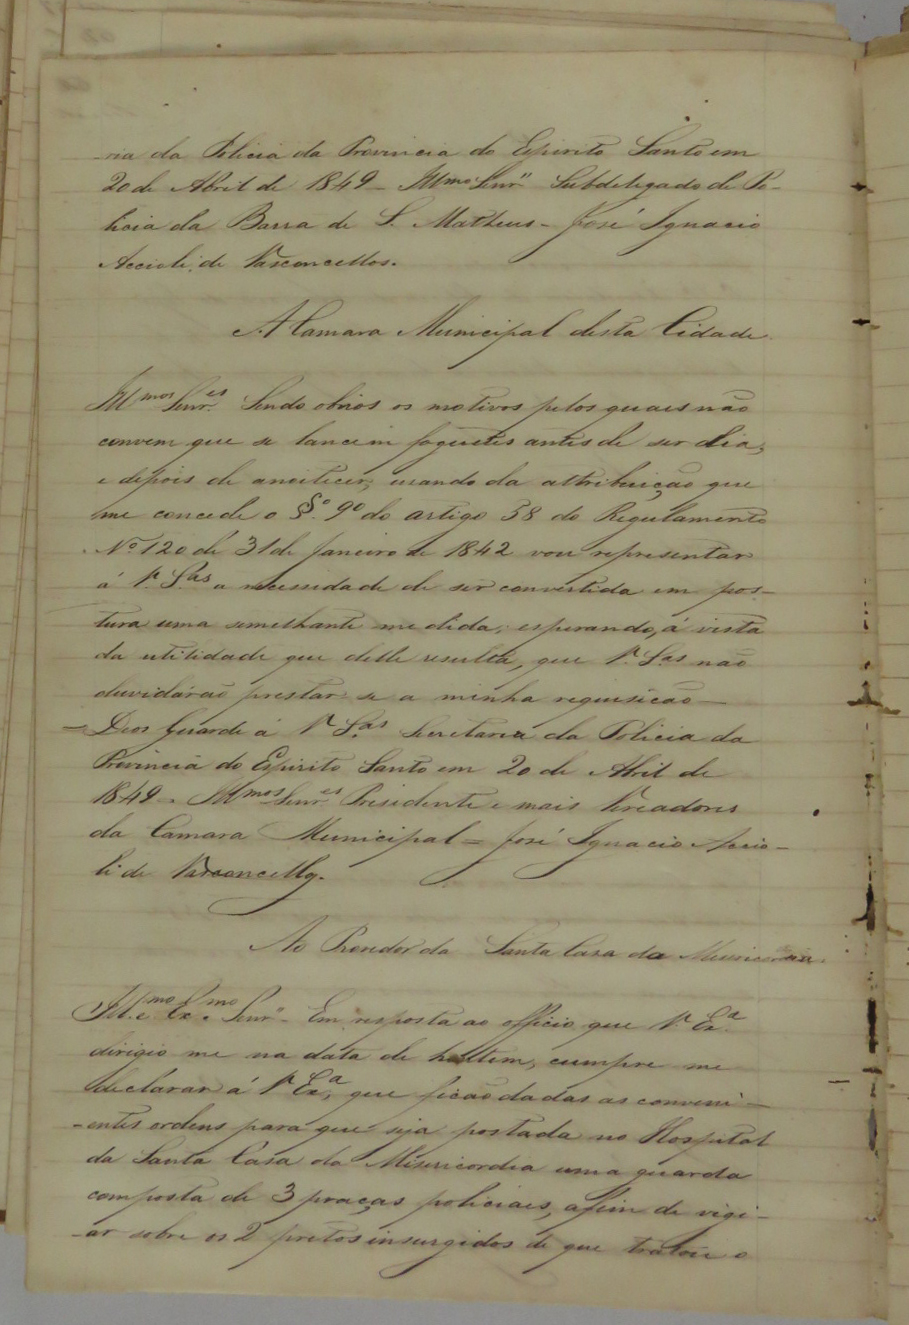 -ria da Policia da Provincia do Espirito Santo em
20 de Abril de 1849 - Illmo Senr. Subdelegado de Po-
licia da Barra de S. Matheus - José Ignacio
Accioli de Vasconcellos.
A Camara Municipal desta Cidade
Illmos Senres Sendo obvios os motivos pelos quaes não
convem que se lancem foguetes antes de ser dia,
e depois de anoitecer, usando da attribuição que
me concede o §.º 9º do artigo 58 do Regulamento
Nº 120 de 31 de Janeiro de 1842 vou representar
á V. S.as a necessidade de ser convertida em pos-
tura uma semelhante medida, esperando, á vista
da utilidade que della resulta, que V. S.as não
duvidárão prestar-se a minha requisição -
- Deos Guarde á V S.as Secretaria da Policia da
Provincia do Espirito Santo em 20 de Abril de
1849 - Illmos Senres Presidente e mais Vreadores
da Camara Municipal = José Ignacio Accio-
li de Vasconcellos.
Ao Provedor da Santa Casa da Misericordia
Illmo e Exmo Senr. - Em resposta ao officio que V. Ex.a
dirigio me na data de hontem, cumpre me
declarar á V Ex.a, que ficão dadas as conveni-
-entes ordens para que seja postada no Hospital
da Santa Casa da Misericordia uma guarda
composta de 3 praças policiaes, afim de vigi-
-ar sobre os 2 pretos insurgidos de que tratou o